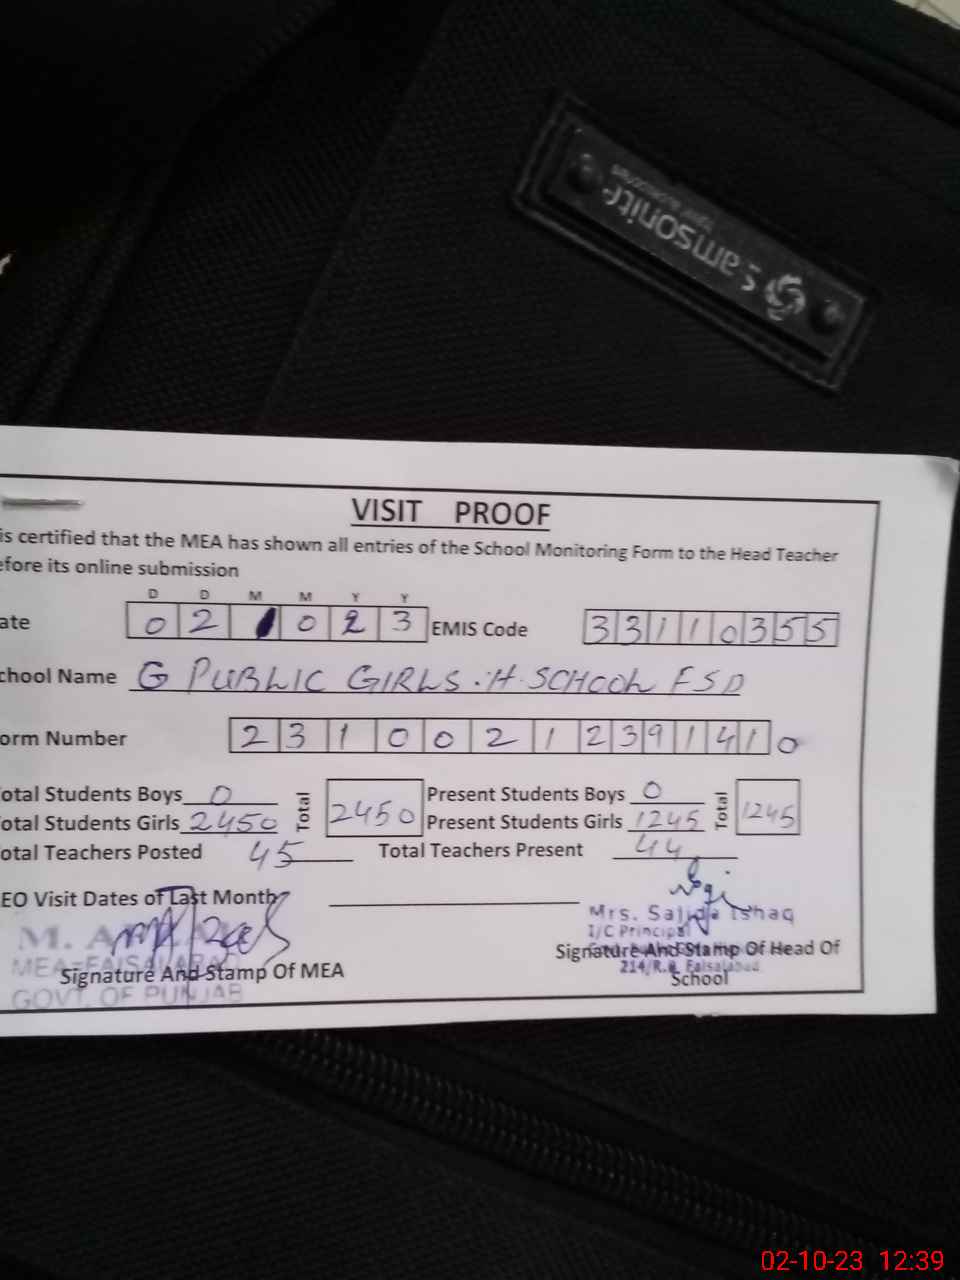 Samsonite
VISIT PROOF
is certified that the MEA has shown all entries of the School Monitoring Form to the Head Teacher
efore its online submission
D D M M Y Y
ate 02 1023 EMIS Code 33110355
chool Name G PUBLIC GIRLS .H. SCHOOL FSD
orm Number 23100212391410
otal Students Boys 0 Total 2450 Present Students Boys 0 Total 1245
otal Students Girls 2450 Present Students Girls 1245
otal Teachers Posted 45 Total Teachers Present 44
EO Visit Dates of Last Month
Mrs. Sajida Ishaq
I/C Principal
Signature And Stamp Of Head Of
214/R.B Faisalabad
School
M.
MEA-FAISALABAD
Signature And Stamp Of MEA
GOVT. OF PUNJAB
02-10-23 12:39